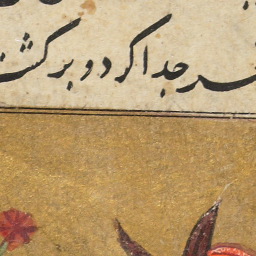 سر جدا کرد و برگشت